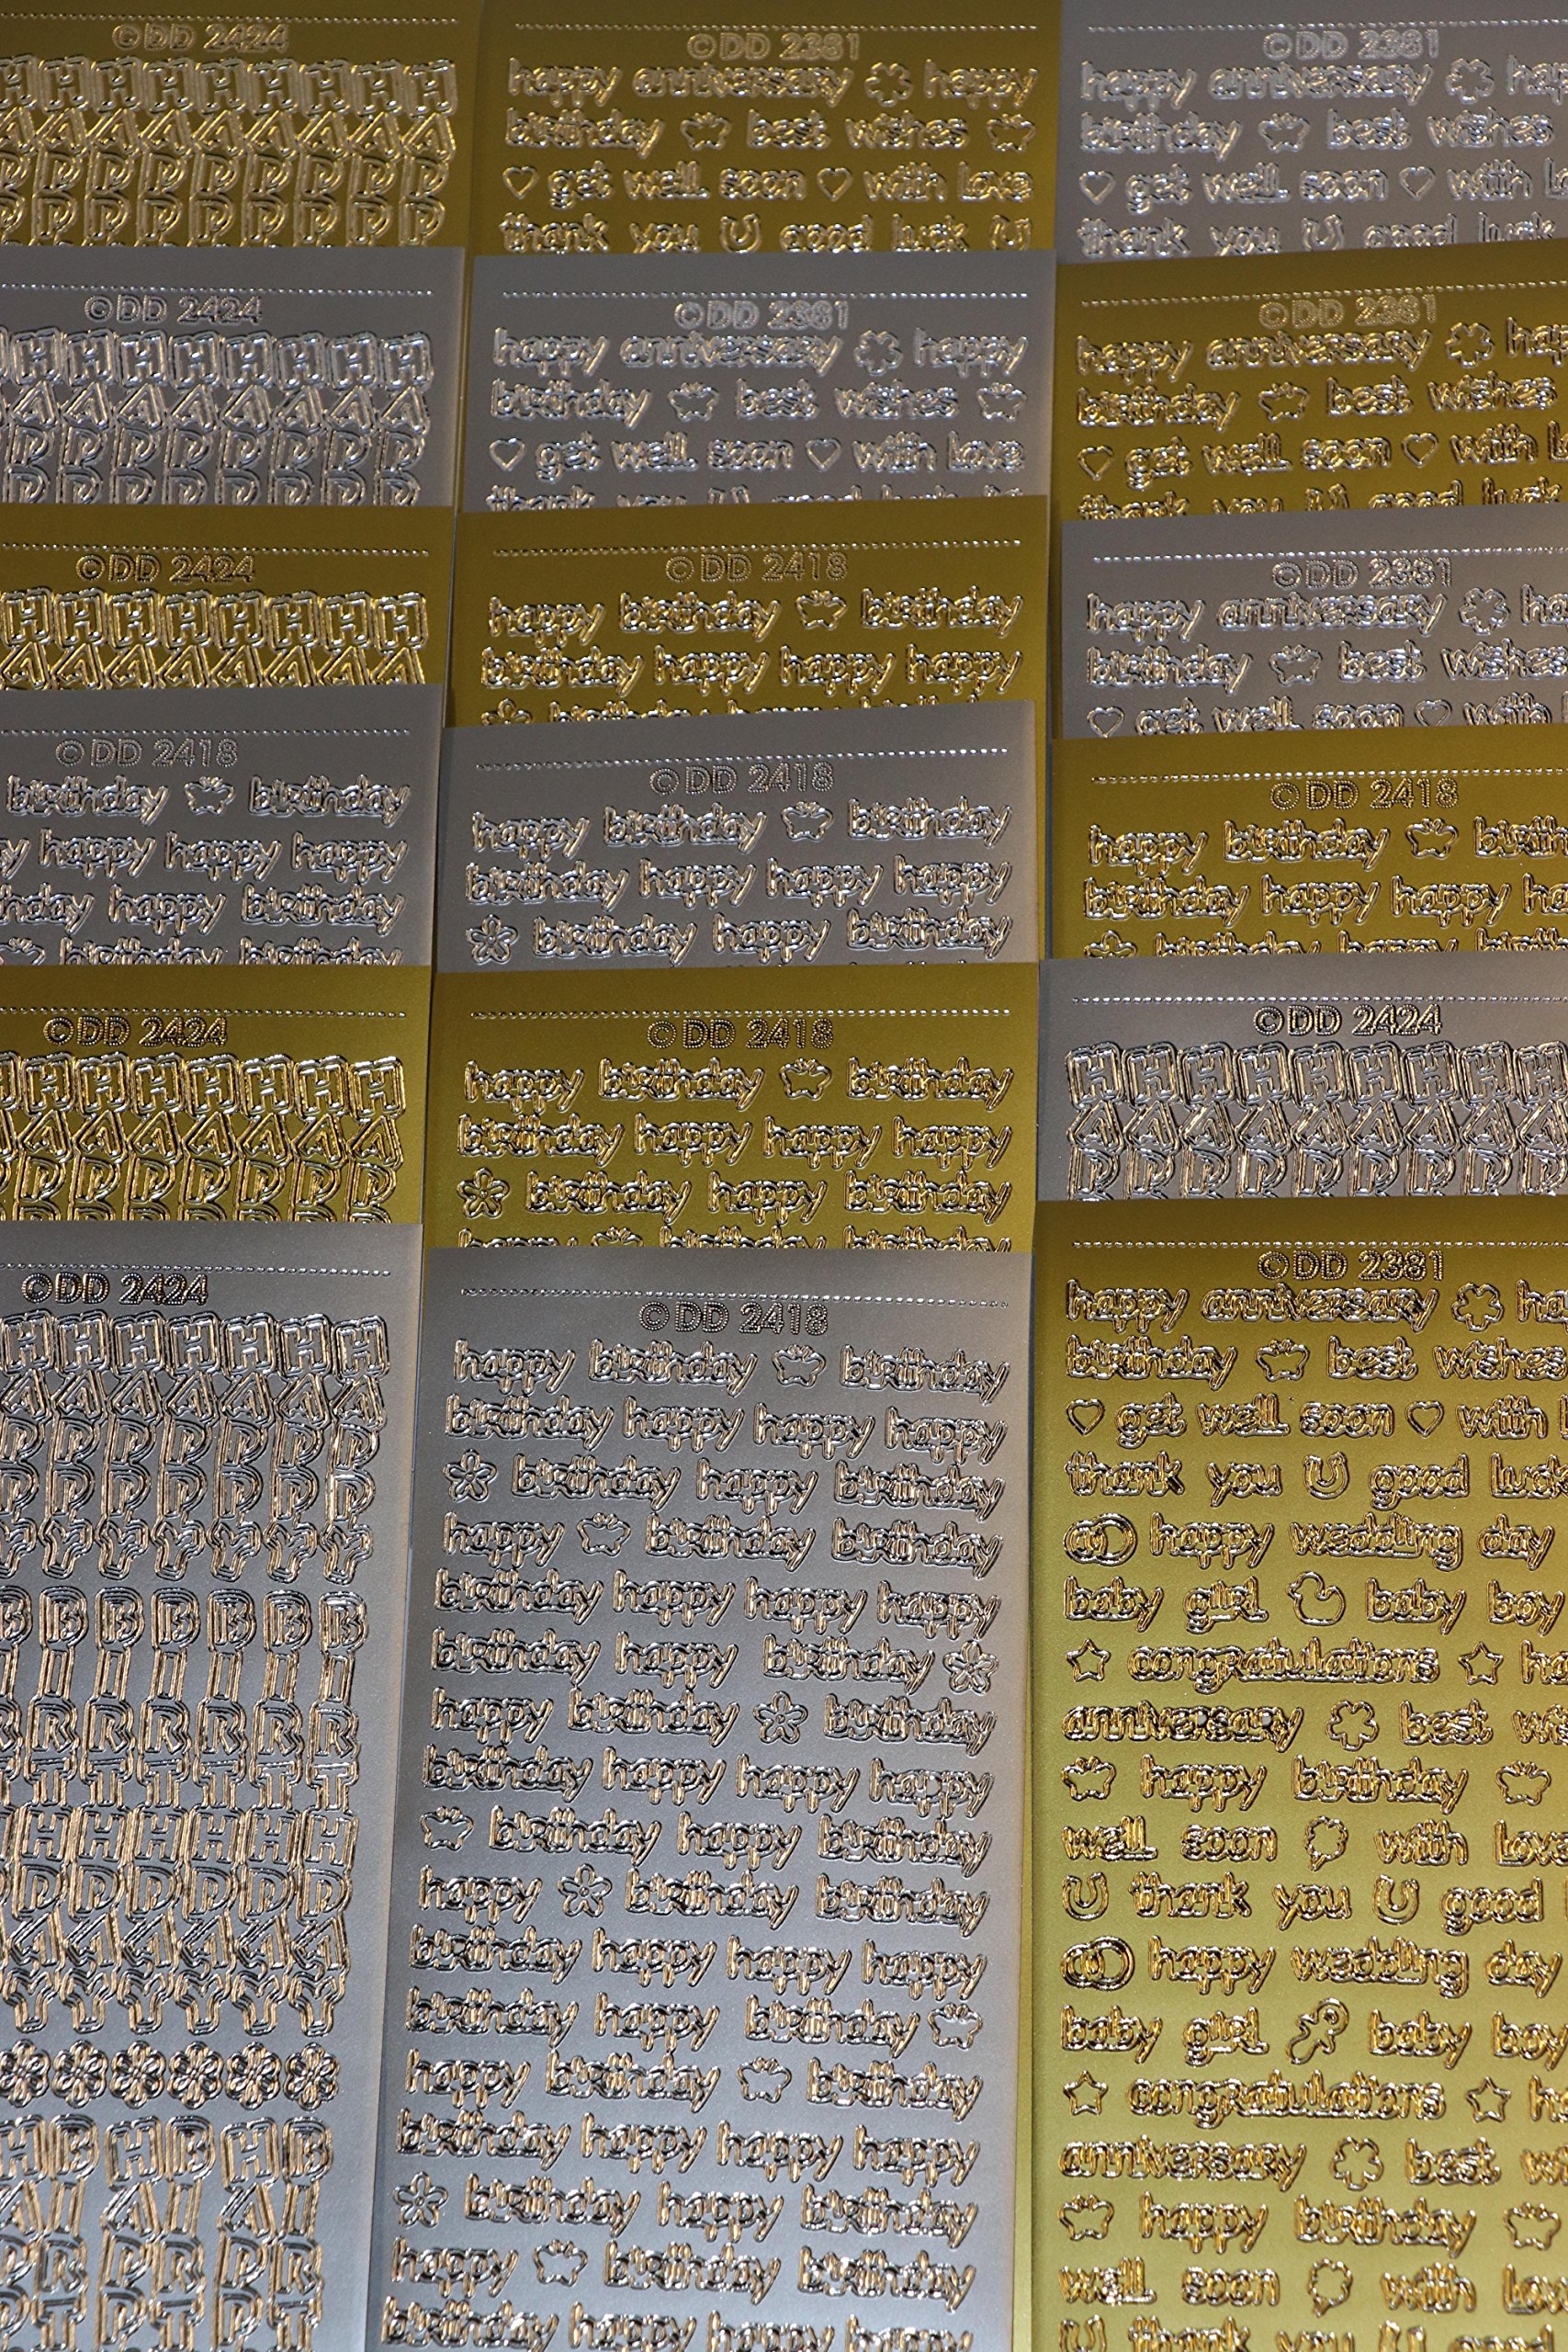 ©DD 2424
H H H H H H H H
A A A A A A A A
P P P P P P P P
P P P P P P P P
©DD 2424
H H H H H H H H
A A A A A A A A
P P P P P P P P
P P P P P P P P
©DD 2424
H H H H H H H H
A A A A A A A A
©DD 2418
birthday birthday
happy happy happy
happy birthday
birthday birthday
©DD 2424
H H H H H H H H
A A A A A A A A
P P P P P P P P
©DD 2424
H H H H H H H
A A A A A A A
P P P P P P P
P P P P P P P
Y Y Y Y Y Y Y
B B B B B B B
I I I I I I
R R R R R R R
T T T T T T
H H H H H H
D D D D D D
A A A A A A
Y Y Y Y Y Y
H B H B H B
A I A I A I
P R P R P R
P T P T P T
©DD 2381
happy anniversary happy
birthday best wishes
get well soon with love
thank you good luck
©DD 2381
happy anniversary happy
birthday best wishes
get well soon with love
thank you good luck
©DD 2418
happy birthday birthday
birthday happy happy happy
birthday happy birthday
©DD 2418
happy birthday birthday
birthday happy happy happy
birthday happy birthday
©DD 2418
happy birthday birthday
birthday happy happy happy
birthday happy birthday
happy birthday birthday
©DD 2418
happy birthday birthday
birthday happy happy happy
birthday happy birthday
happy birthday birthday
birthday happy happy happy
birthday happy birthday
happy birthday birthday
birthday happy happy happy
birthday happy birthday
happy birthday birthday
birthday happy happy happy
birthday happy birthday
happy birthday birthday
birthday happy happy happy
birthday happy birthday
happy birthday birthday
birthday happy happy happy
©DD 2381
happy anniversary
birthday best wishes
get well soon with
thank you good luck
©DD 2381
happy anniversary
birthday best wishes
get well soon with
thank you good luck
©DD 2381
happy anniversary
birthday best wishes
get well soon with
©DD 2418
happy birthday
birthday happy happy
birthday happy birthday
©DD 2424
H H H H H H H H H
A A A A A A A A A
P P P P P P P P P
©DD 2381
happy anniversary
birthday best wishes
get well soon with
thank you good luck
happy wedding day
baby girl baby boy
congratulations
anniversary best
happy birthday
well soon with love
thank you good
happy wedding day
baby girl baby boy
congratulations
anniversary best
happy birthday
well soon with love
thank you good